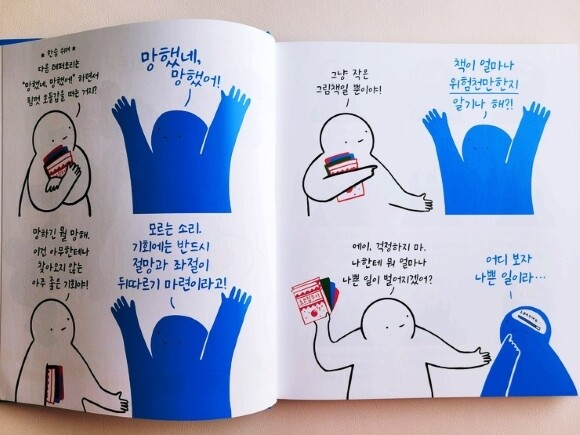 * 한숨 쉬며 *
다음 레퍼토리는
"망했네, 망했어!" 하면서
팔짝 오도갑을 떠는 거지?
망했네,
망했어!
망하긴 뭘 망해.
이건 아무한테나
찾아오지 않는
아주 좋은 기회야!
모르는 소리.
기회에는 반드시
절망과 좌절이
뒤따르기 마련이라고!
그냥 작은
그림책일 뿐이야!
책이 얼마나
위험천만한지
알기나 해?!
에이, 걱정하지 마.
나한테 뭐 얼마나
나쁜 일이 벌어지겠어?
어디 보자
나쁜 일이라...